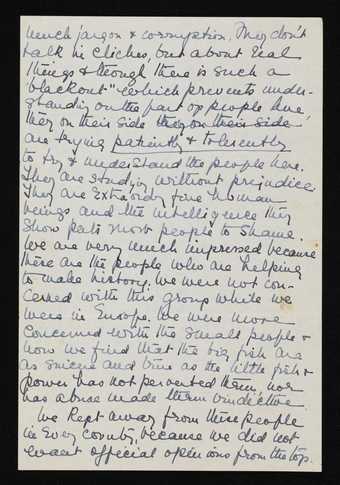 much jargon & corruption. They don't
talk in cliches, but about real
things & though there is such a
"blackout" which prevents under-
standing on the part of people here,
they on their side they on their side
are trying patiently & tolerantly
to try & understand the people here.
They are studying without prejudice.
They are extraordinary fine human
beings and the intelligence they
show puts most people to shame.
We are very much impressed because
these are the people who are helping
to make history. We were not con-
cerned with this group while we
were in Europe. We were more
concerned with the small people &
now we find that the big fish are
as sincere and true as the little fish &
power has not perverted them, nor
has abuse made them vindictive.
We kept away from these people
in every country, because we did not
want official opinions from the top.